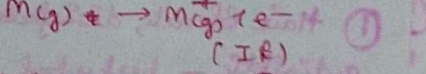 M(g) → M⁺(g) + e⁻ ①
(IE)